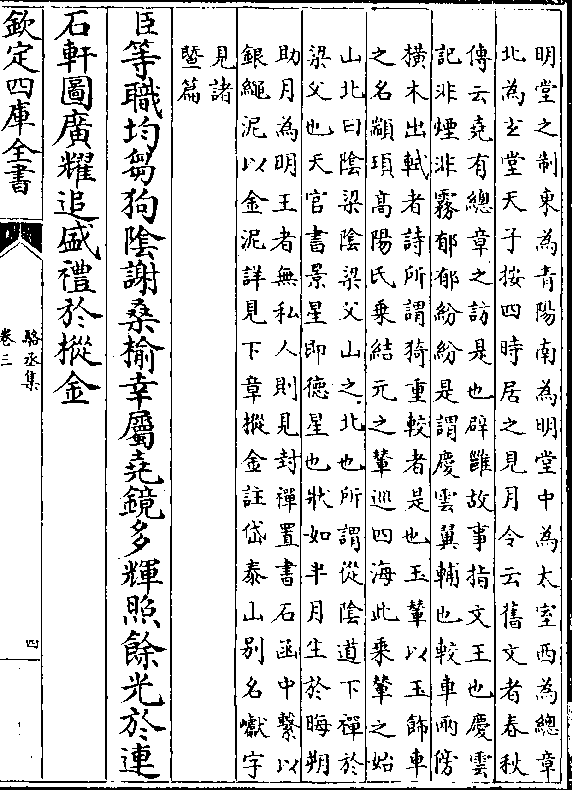 明堂之制東為青陽南為明堂中為太室西為總章
北為玄堂天子按四時居之見月令云舊文者春秋
傳云堯有總章之訪是也辟雝故事指文王也慶雲
記非煙非霧郁郁紛紛是謂慶雲翼輔也較車兩傍
橫木出軾者詩所謂猗重較者是也玉輦以玉飾車
之名顓頊高陽氏乗結元之輦巡四海此乗輦之始
山北曰陰梁陰梁父山之北也所謂從陰道下禪於
梁父也天官書景星即德星也狀如半月生於晦朔
助月為明王者無私人則見封禪置書石函中繫以
銀繩泥以金泥詳見下章摐金註岱泰山别名巘字
見諸
暨篇
臣等職均芻狗陰謝桑榆幸屬堯鏡多輝照餘光於連
石軒圖廣耀追盛禮於摐金
欽定四庫全書
駱丞集
卷三
四